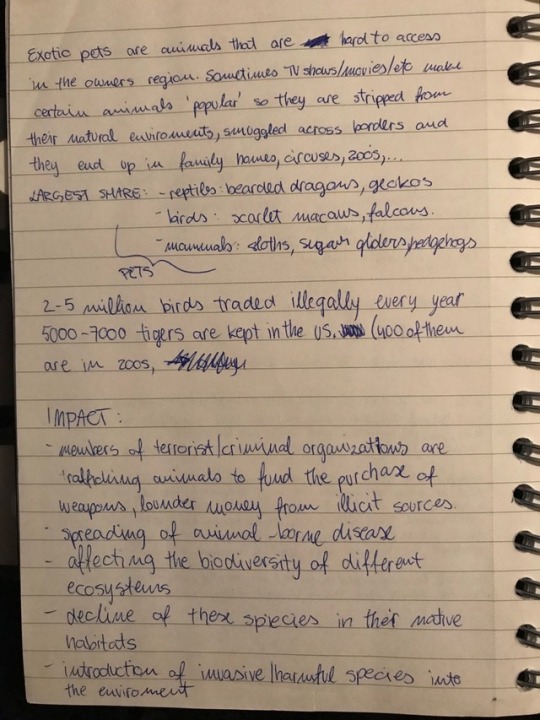 Exotic pets are animals that are hard to access
in the owners region. Sometimes TV shows/movies/etc make
certain animals 'popular' so they are stripped from
their natural enviroments, smuggled across borders and
they end up in family homes, circuses, zoos,...
LARGEST SHARE: - reptiles: bearded dragons, geckos
- birds: scarlet macaws, falcons.
- mammals: sloths, sugar gliders, hedgehogs
PETS
2-5 million birds traded illegally every year
5000-7000 tigers are kept in the US. (400 of them
are in zoos,
IMPACT:
- members of terrorist/criminal organizations are
trafficking animals to fund the purchase of
weapons, lounder money from illicit sources.
- spreading of animal-borne disease
- affecting the biodiversity of different
ecosystems
- decline of these spiecies in their native
habitats
- introduction of invasive/harmful species into
the enviroment